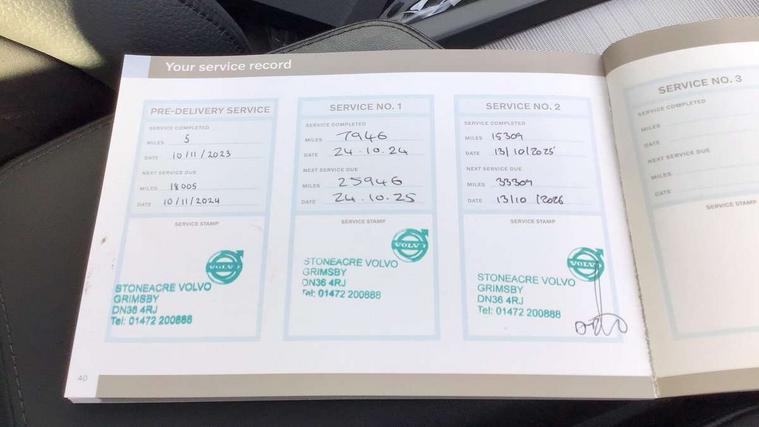 Your service record
PRE-DELIVERY SERVICE
SERVICE COMPLETED
MILES 5
DATE 10/11/2023
NEXT SERVICE DUE
MILES 18005
DATE 10/11/2024
SERVICE STAMP
VOLVO
STONEACRE VOLVO
GRIMSBY
DN36 4RJ
Tel: 01472 200888
SERVICE NO. 1
SERVICE COMPLETED
MILES 7946
DATE 24.10.24
NEXT SERVICE DUE
MILES 25946
DATE 24.10.25
SERVICE STAMP
VOLVO
STONEACRE VOLVO
GRIMSBY
DN36 4RJ
Tel: 01472 200888
SERVICE NO. 2
SERVICE COMPLETED
MILES 15309
DATE 13/10/2025
NEXT SERVICE DUE
MILES 33309
DATE 13/10/2026
SERVICE STAMP
VOLVO
STONEACRE VOLVO
GRIMSBY
DN36 4RJ
Tel: 01472 200888
SERVICE NO. 3
SERVICE COMPLETED
MILES
DATE
NEXT SERVICE DUE
MILES
DATE
SERVICE STAMP
40